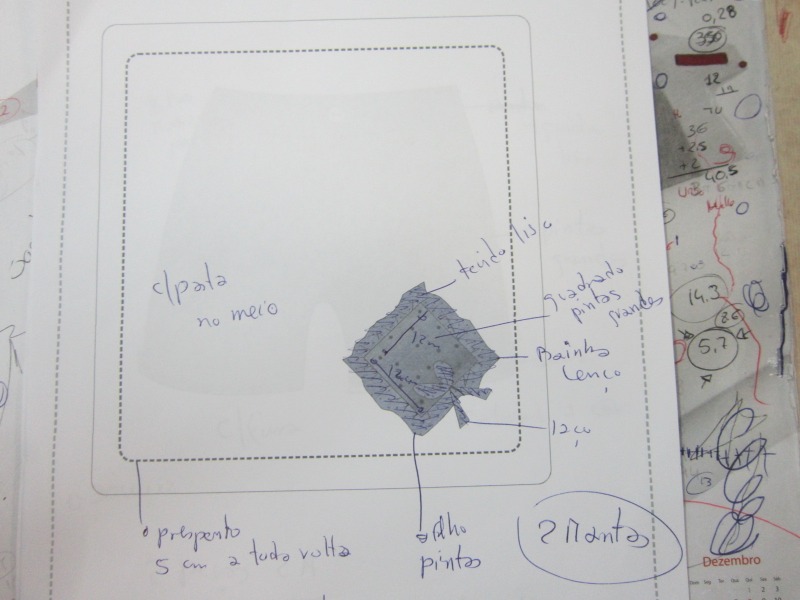 c/pasta
no meio
tecido liso
quadrado
pintas
grandes
12cm
12cm
Bainha
lenço
laço
• prespento
5 cm a toda volta
pintas
2 Mantas
0,28
350
12
36
+2.5
+2
40,5
14.3
8.6
5,7
13
Dezembro